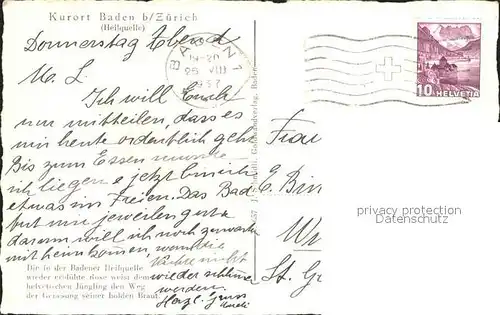 Kurort Baden b/Zürich
(Heilquelle)
Donnerstag Abend
M. L.
Ich will Euch
nur mitteilen, dass es
mir heute ordentlich geht
Bis zum Essen musste
ich liegen & jetzt bin ich
etwas im Freien. Das Bad
tut mir jeweilen gut &
darum will ich noch gewarten
mit heim kommen, wenn die
nicht
wieder schlimmer
werden.
Herzl. Gruss
Die in der Badener Heilquelle
wieder erblühte Rose weist dem
helvetischen Jüngling den Weg
der Genesung seiner holden Braut.
BADEN 1
25 VIII
1937
10 HELVETIA
Frau
E. Bin
St. G
privacy protection
watermark